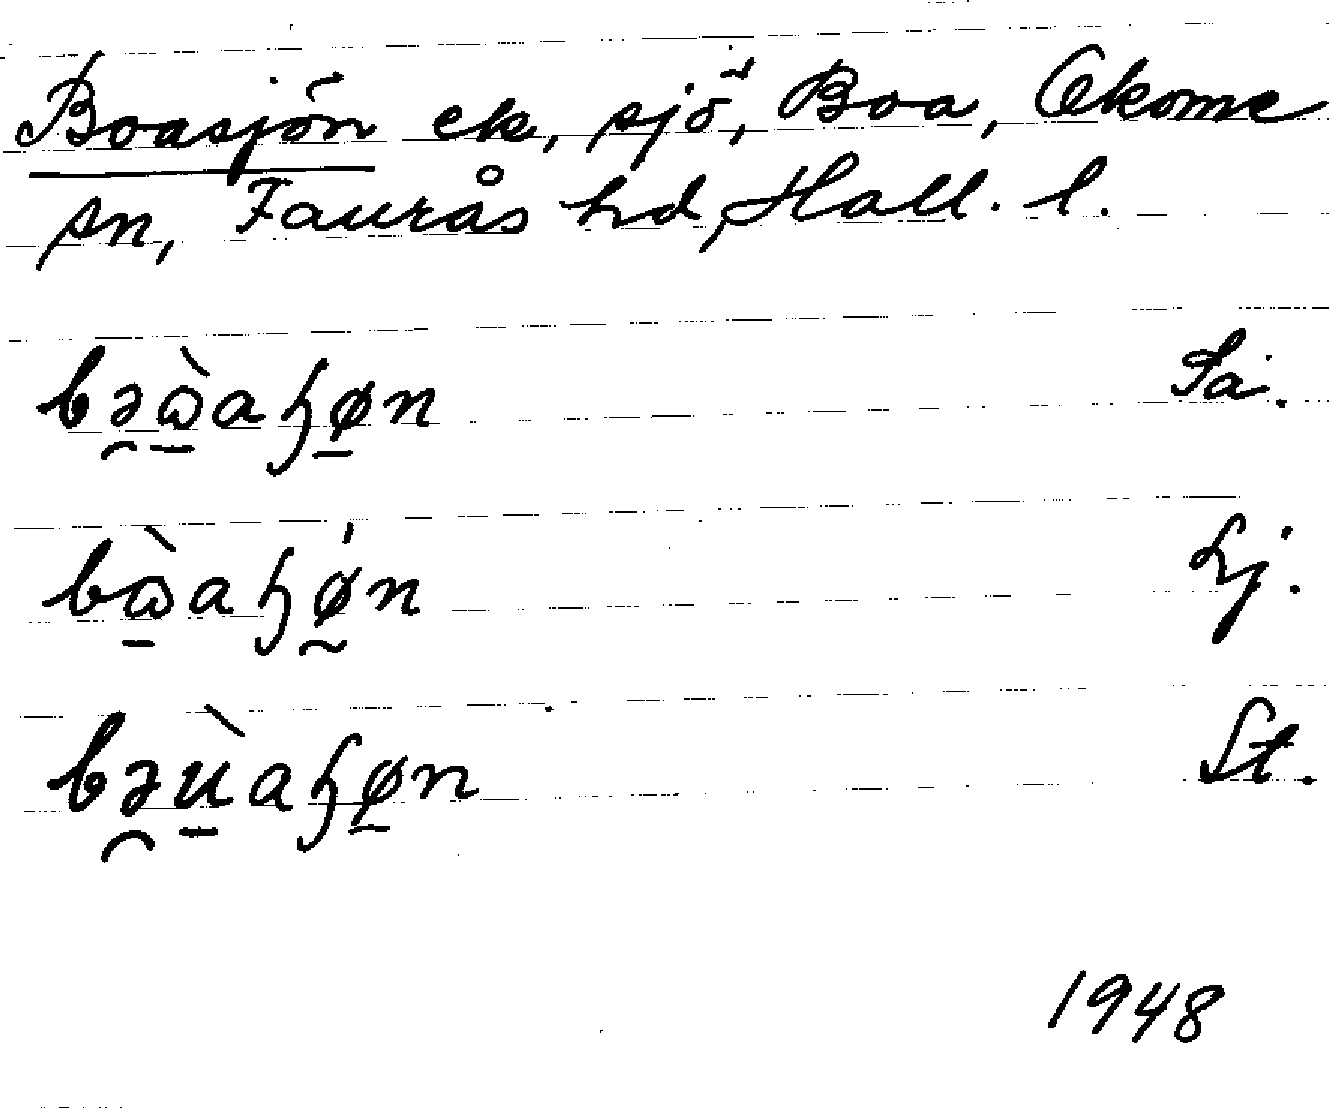 Boasjön ek, sjö, Boa, Okome
sn, Faurås hd, Hall. l.
bə̯ὼ̱aɧø̱n Sä.
bὼ̱aɧǿ̰n Lj.
bə̯ṵ̀aɧø̱n St.
1948